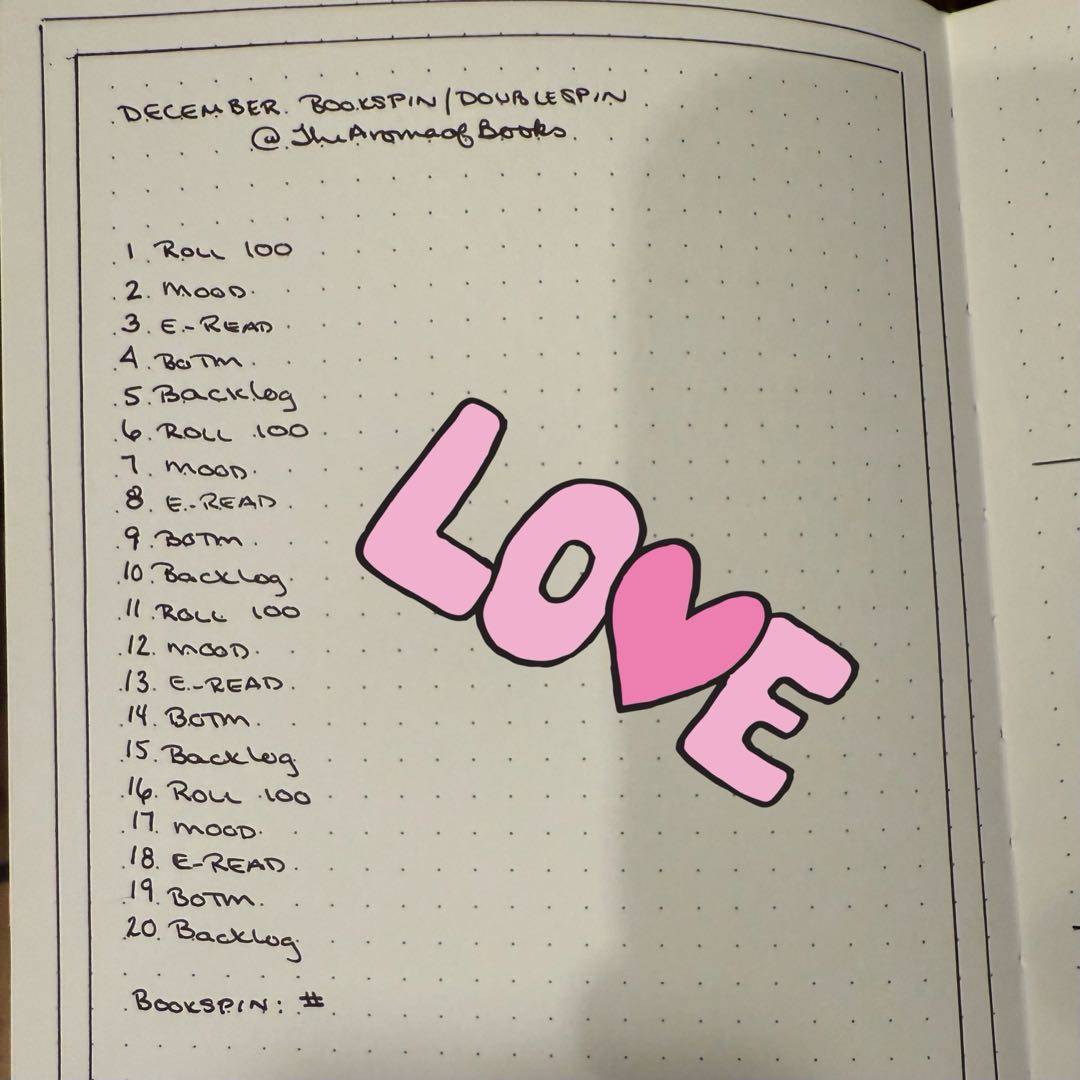 DECEMBER BOOKSPIN/DOUBLESPIN
@TheAromaofBooks
1 ROLL 100
2. MOOD
3. E-READ
4. BOTM
5. Backlog
6. ROLL 100
7. MOOD
8. E-READ
9. BOTM
10. Backlog
11. ROLL 100
12. MOOD
13. E-READ
14. BOTM
15. Backlog
16. ROLL 100
17. MOOD
18. E-READ
19. BOTM
20. Backlog
BOOKSPIN: #
LOVE